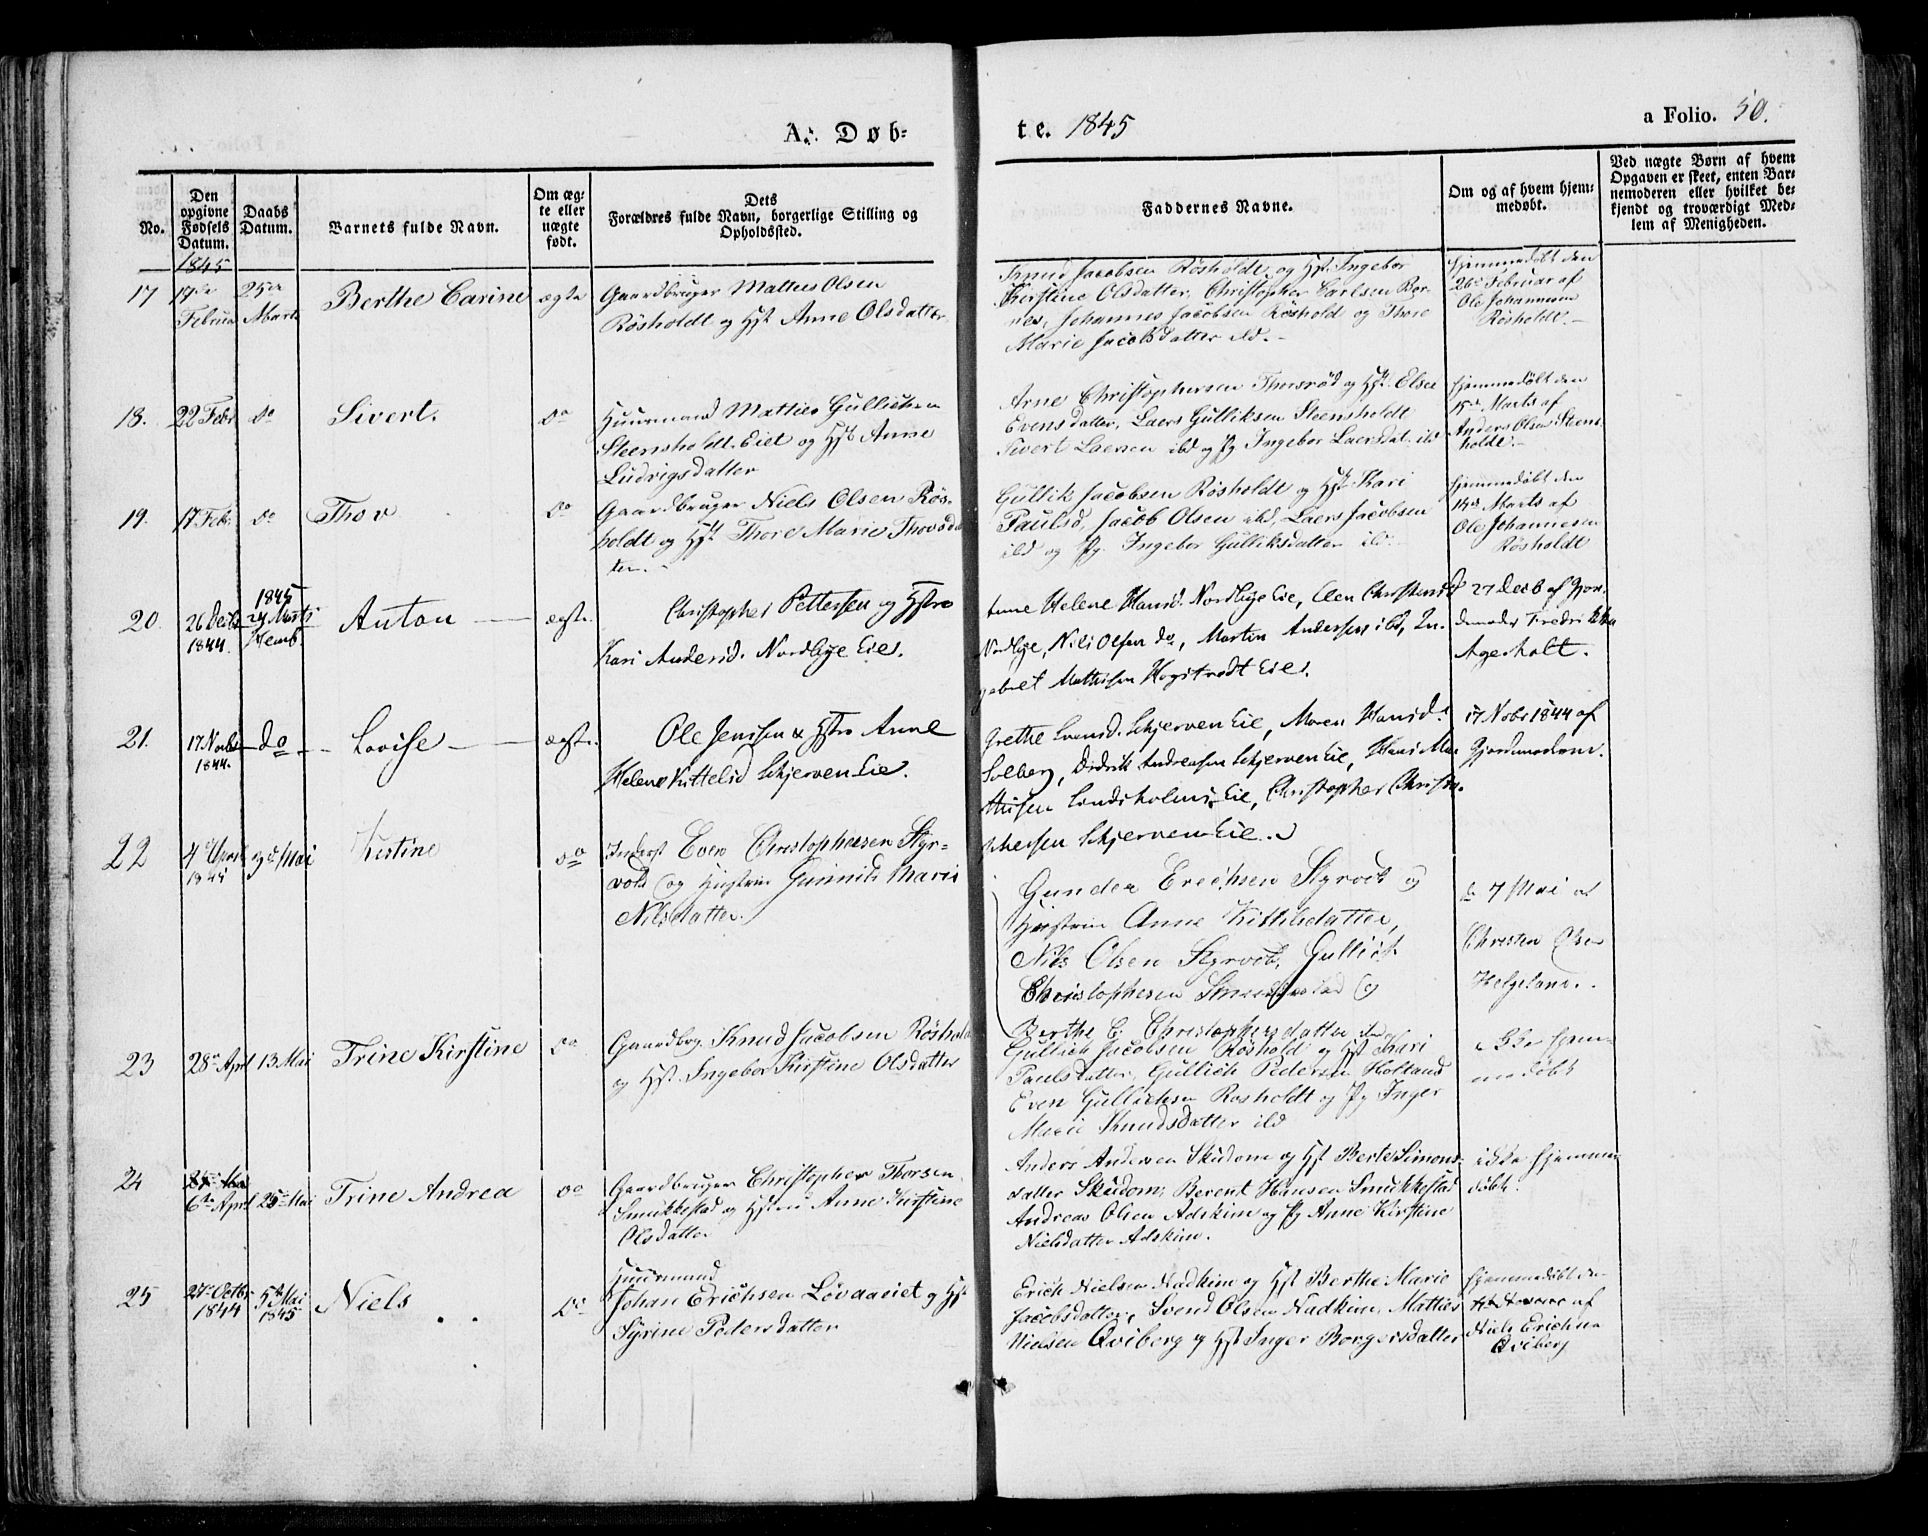 A. Døb-
te. 1845
a Folio. 50.
No.
Den opgivne Fødsels Datum.
Daabs Datum.
Barnets fulde Navn.
Om ægte eller uægte født.
Dets Forældres fulde Navn, borgerlige Stilling og Opholdssted.
Faddernes Navne.
Om og af hvem hjemmedøbt.
Ved uægte Børn af hvem Opgaven er skeet, enten Barnemoderen eller hvilket bekjendt og troværdigt Medlem af Menigheden.
1845
17
19de Februa
25de Marts
Berthe Carine
ægte
Gaardbruger Mathies Olsen
Rösholdt og Hst Anne Olsdatter
Knud Jacobsen Rösholdt og Hst. Ingebor
Kirstine Olsdatter, Christopher Carlsen Ber-
nes, Johannes Jacobsen Rösholdt og Thore
Marie Jacobsdatter ibd.
Hjemmedöbt den
26de Februar af
Ole Johannesen
Rösholdt.
18.
22 Febr
do
Sivert.
do
Huusmand Mathies Gullichsen
Steensholdt Eiet og Hst Anne
Ludvigsdatter
Arne Christophersen Thorsröd og Hst. Elsee
Evensdatter, Laers Gulliksen Steensholdt
Sivert Laersen ibd og Pg Ingebor Laersdat. ibd
Hjemmedöbt den
15de Marts af
Anders Olsen Steens
holdt.
19.
17 Febr.
do
Thov
do
Gaardbruger Niels Olsen Rös-
holdt og Hst. Thore Marie Thovsdat
ter.
Gullik Jacobsen Rösholdt og Hst Kari
Paulsd, Jacob Olsen ibd, Laers Jacobsen
ibd og Pg. Ingebor Gulliksdatter ibd.
Hjemmedöbt den
14de Marts af
Ole Johannesen
Rösholdt
20.
26 Decb 1844.
1845 24 Marts
Anton
ægte.
Christopher Pettersen og Hstro
Kari Andersd. Nordbye Eie.
Anne Helene Hansd. Nordbye Eie, Elen Christensd
Nordbye, Nils Olsen do, Martin Andersen ibd, In-
geborg Mathisen Hogstvedt Eie.
27 Decb af Gjor-
demoder
Ageholt.
21.
17 Novbr 1844.
do
Lovise
ægte.
Ole Jensen & Hstro Anne
Helene Kittelsd Skjerven Eie.
Grethe Svensd. Skjerven Eie, Maren Hansd.
Solberg, Didrik Andreasen Skjerven Eie, Hans Ma-
thisen Lindsholms Eie, Christopher Christo-
phersen Skjerven Eie.
17 Nobr 1844 af
Gjordemoderen.
22
4de April 1845
3de Mai
Kirstine
do
Inderst Even Christophersen Styr-
vold og Hustrue Gunnild Marie
Nilsdatter.
Gunder Erichsen Styrvold og
Hustrue Anne Kittilsdatter,
Nils Olsen Styrvold, Gullick
Christophersen Smukkestad og
Berthe C. Christophersdatter ibd
d. 7 Mai af
Christen Olsen
Helgeland.
23
28de April
13 Mai
Trine Kirstine
do
Gaardbrg. Knud Jacobsen Rösholdt
og Hst. Ingebor Kirstine Olsdatter
Gullich Jacobsen Rösholdt og Hst Kari
Paulsdatter, Gullich Pedersen Holland
Even Gullichsen Rosholdt og Pg Inger
Marie Knudsdatter ibd
ikke hjem-
medöbt
24
6te April
25de Mai
Trine Andrea
do
Gaardbruger Christopher Thorsen
Smukkestad og Hstru Anne Kirstine
Olsdatter
Anders Andersen Skudom og Hst Berte Simons-
datter Skudom, Berent Hansen Smukkestad
Andreas Olsen Adskim og Pg Anne Kirstine
Nielsdatter Adskim.
ikke Hjemme-
döbt.
25
27de Octbr 1844
5te Mai 1845
Niels
do
Huusmand
Johan Erichsen Lövaaeiet og Hst
Syrine Pedersdatter
Erich Nielsen Nadkim og Hst Berthe Marie
Jacobsdatter, Svend Olsen Nadkim, Mathies
Nielsen Qviberg og Hst Inger Borgersdatter
Hjemmedöbt den
af
Niels Erichsen
Qviberg